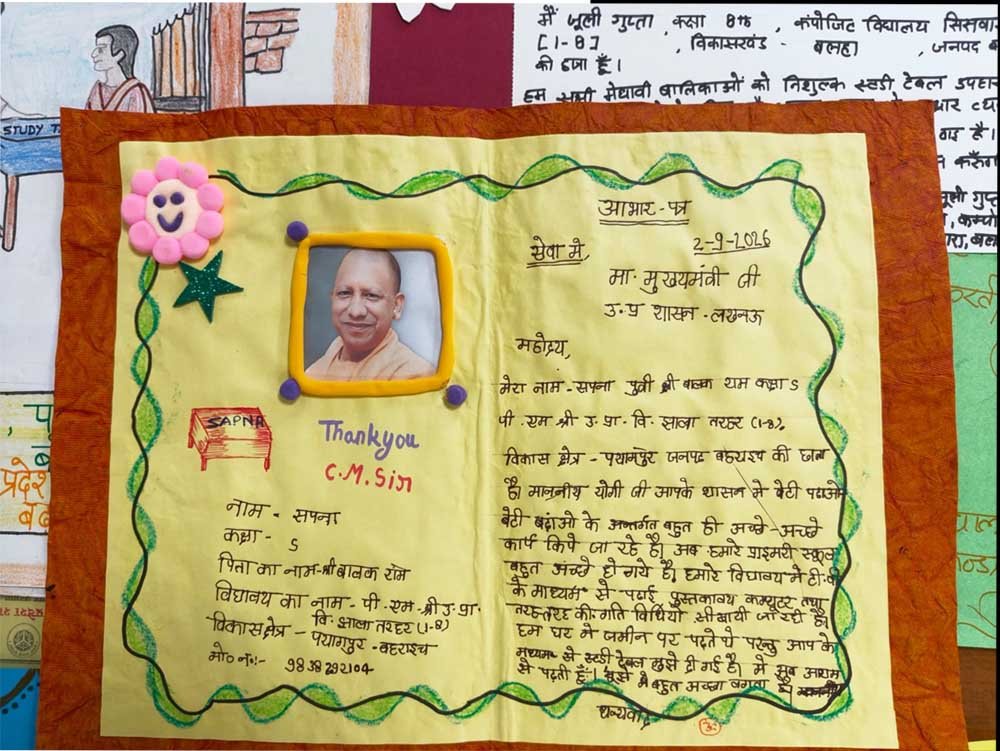 मैं जूली गुप्ता, कक्षा 8th, कंपोजिट विद्यालय सिसवा
[1-8] , विकासखंड - बलहा , जनपद ब
की छात्रा हूँ।
हम सभी मेधावी बालिकाओं को निशुल्क स्टडी टेबल उपहार
STUDY T
आभार-पत्र
2-9-2026
सेवा में,
मा. मुख्यमंत्री जी
उ.प्र शासन - लखनऊ
महोदय,
मेरा नाम - सपना पुत्री श्री बालक राम कक्षा 5
पी. एम श्री उ. प्रा. वि. झाला तरहर (1-8),
विकास क्षेत्र - पयागपुर जनपद बहराइच की छात्रा
है। माननीय योगी जी आपके शासन में बेटी पढाओ
बेटी बढ़ाओ के अन्तर्गत बहुत ही अच्छे-अच्छे
कार्य किये जा रहे है। अब हमारे प्राइमरी स्कूल
बहुत अच्छे हो गये है। हमारे विद्यालय मे टी.वी
के माध्यम से पढाई पुस्तकालय कम्प्यूटर तथा
तरह-तरह की गति विधियाँ सीखायी जा रही है।
हम घर मे जमीन पर पढ़ते थे परन्तु आप के
माध्यम से स्टडी टेबल मुझे दी गई है। मे खुब आराम
से पढ़ती हूँ। मुझे मे बहुत अच्छा लगता है।
धन्यवाद
SAPNA
Thankyou
C.M. Sir
नाम - सपना
कक्षा - 5
पिता का नाम - श्री बालक राम
विद्यालय का नाम - पी. एम. श्री उ. प्रा.
वि. झाला तरहर (1-8)
विकासक्षेत्र - पयागपुर - बहराइच
मो० न०:- 9838292104
प्रदेश